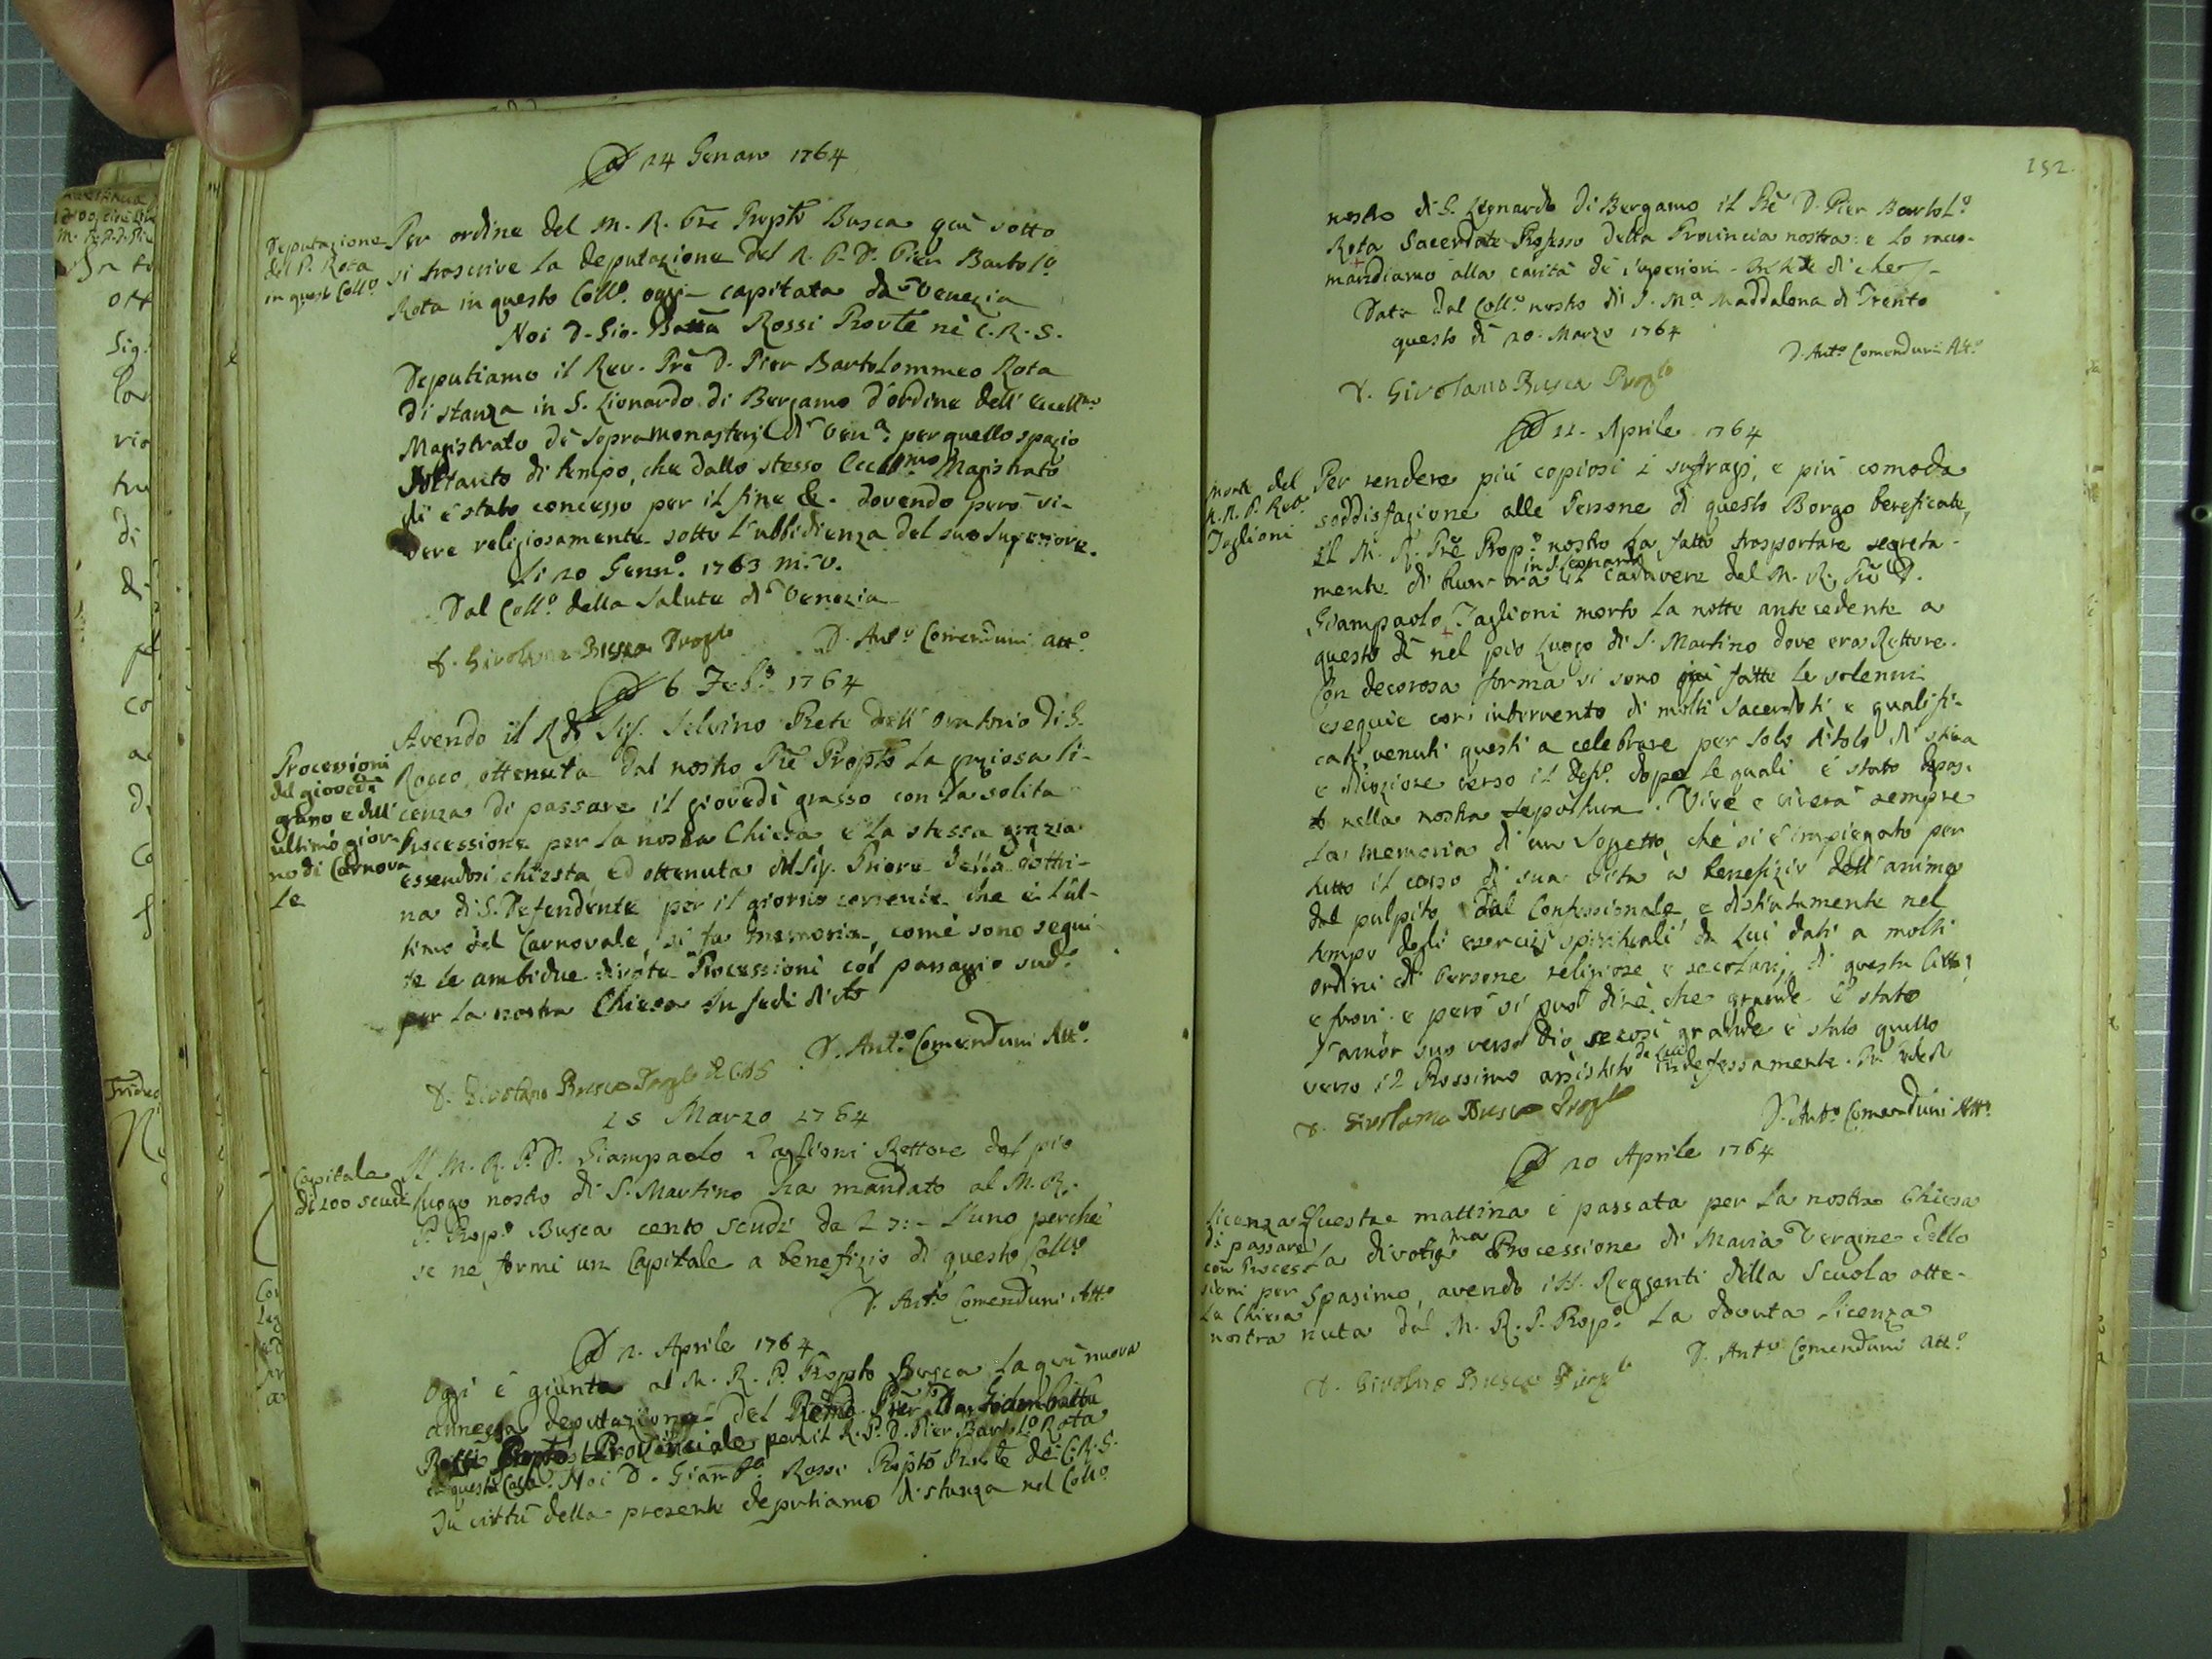 A 24 Genaro 1764
Deputazione
del P. Rota
in questo Coll.o
Per ordine del M. R. Pre Propto Busca quì sotto
si trascrive la deputazione del R. P. D. Pier Bartol.o
Rota in questo Coll.o oggi capitata da Venezia
Noi D. Gio. Batta Rossi Provle nè C. R. S.
Deputiamo il Rev. Pre D. Pier Bartolommeo Rota
di stanza in S. Lionardo di Bergamo d'ordine dell' Eccell.mo
Magistrato de Sopramonasterj di Ven.a per quello spazio
soltanto di tempo, che dallo stesso Ecc.mo Magistrato
di è stato concesso per il fine &. dovendo però vi-
vere religiosamente sotto l'ubbidienza del suo Superiore.
Li 20 Genn.o 1763 m. v.
Dal Coll.o della Salute di Venezia
D. Girolamo Busca Prop.to
D. Ant.o Comenduni Att.o
A 6 Feb.o 1764
Processioni
del giovedì
grasso e dell'
ultimo gior-
no di Carnova
le
Avendo il Rdo Sig. Selvino Prete dell' Oratorio di S.
Rocco ottenuta dal nostro Pre Propto la graziosa li-
cenza di passare il giovedì grasso con la solita
Processione per la nostra Chiesa e la stessa grazia
essendosi chiesta ed ottenuta dal Sig. Priore della dottri-
na di S. Defendente per il giorno corrente che è l'ul-
timo del Carnovale, si fa memoria, come sono segui-
te le ambidue divote Processioni col passagio sud.o
per la nostra Chiesa In fede di che
D. Ant.o Comenduni Att.o
D. Girolamo Busca Prop.to d C.R.S
25 Marzo 1764
Capitale
di 100 scudi
Il M. R. P. D. Giampaolo Taglioni Rettore del pio
luogo nostro di S. Martino ha mandato al M. R.
P. Prop.o Busca cento scudi da L 7:- l'uno perchè
se ne formi un Capitale a benefizio di questo Coll.o
D. Ant.o Comenduni Att.o
A 2. Aprile 1764
Oggi è giunta al M. R. P. Propto Busca la quì nuova
annessa deputazione del
Rossi Propto Provinciale per il R. P. D. Pier Bartol.o Rota
in questa Casa. Noi D. Giamb.a Rossi Propto Provle de C. R. S.
In virtù della presente deputiamo di stanza nel Coll.o
152.
nostro di S. Leonardo di Bergamo il Pre D. Pier Bartol.o
Rota Sacerdote Professo della Provincia nostra: e lo racco-
mandiamo alla carità de superiori. In fede di che
Data dal Coll.o nostro di S. M.a Maddalena di Trento
questo dì 20. Marzo 1764
D. Ant.o Comenduni Att.o
D. Girolamo Busca Prop.to
A 11. Aprile 1764
Morte del
M. R. P. Ret.e
Taglioni
Per rendere più copiosi i suffragi, e più comoda
soddisfazione alle Persone di questo Borgo beneficate,
il M. R. Pre Prop.o nostro ha fatto trasportare segreta-
mente di buon ora in S. Leonardo il cadavere del M. R. Pre D.
Giampaolo Taglioni morto la notte antecedente a
questo dì nel pio luogo di S. Martino dove era Rettore.
Con decorosa forma si sono quì fatte le solenni
esequie con intervento di molti Sacerdoti e qualifi-
cati, venuti questi a celebrare per solo titolo di stima
e divozione verso il def.o dopo le quali è stato depos-
to nella nostra sepoltura. Vive e viverà sempre
la memoria di un Soggetto, che si è impiegato per
tutto il corso di sua vita a benefizio dell'anime
dal pulpito, dal Confessionale, e distintamente nel
tempo degli esercizj spirituali da lui dati a molti
ordini di Persone religiose e secolari, di questa Città,
e fuori e però si può dire che grande è stato
l'amor suo verso Dio, se così grande è stato quello
verso il Prossimo assistito da lui indefessamente. In fede &
D. Girolamo Busca Prop.to
D. Ant.o Comenduni Att.o
A 20 Aprile 1764
Licenza
di passare
con Proces-
sioni per
la Chiesa
nostra
Questa mattina è passata per la nostra Chiesa
la divotis.ma Processione di Maria Vergine dello
Spasimo, avendo i SS. Reggenti della Scuola otte-
nuta dal M. R. P. Prop.o la dovuta licenza
D. Ant.o Comenduni Att.o
D. Girolamo Busca Prop.to